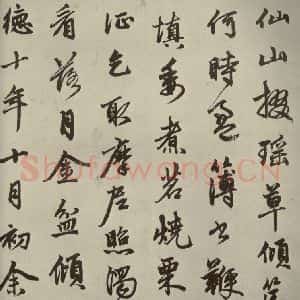 仙山掇瑶草傾筐
何時盈薄書鞭
填委煮茗燒栗
征乞取摩尼照濁
看落月金盆傾
德十年十月初余
Shufawang.CN